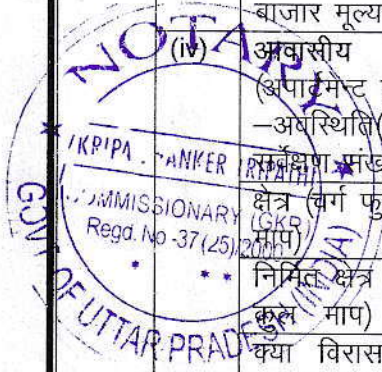 बाजार मूल्य
(iv) आवासीय
(अपार्टमेन्ट
–अवस्थिति(
सर्वेक्षण संख
क्षेत्र (वर्ग फु
माप)
निर्मित क्षेत्र
कुल माप)
क्या विरास
NOTARY
COMMISSIONARY (GKR)
Regd. No -37(25)/2000
GOVT OF UTTAR PRADESH (INDIA)